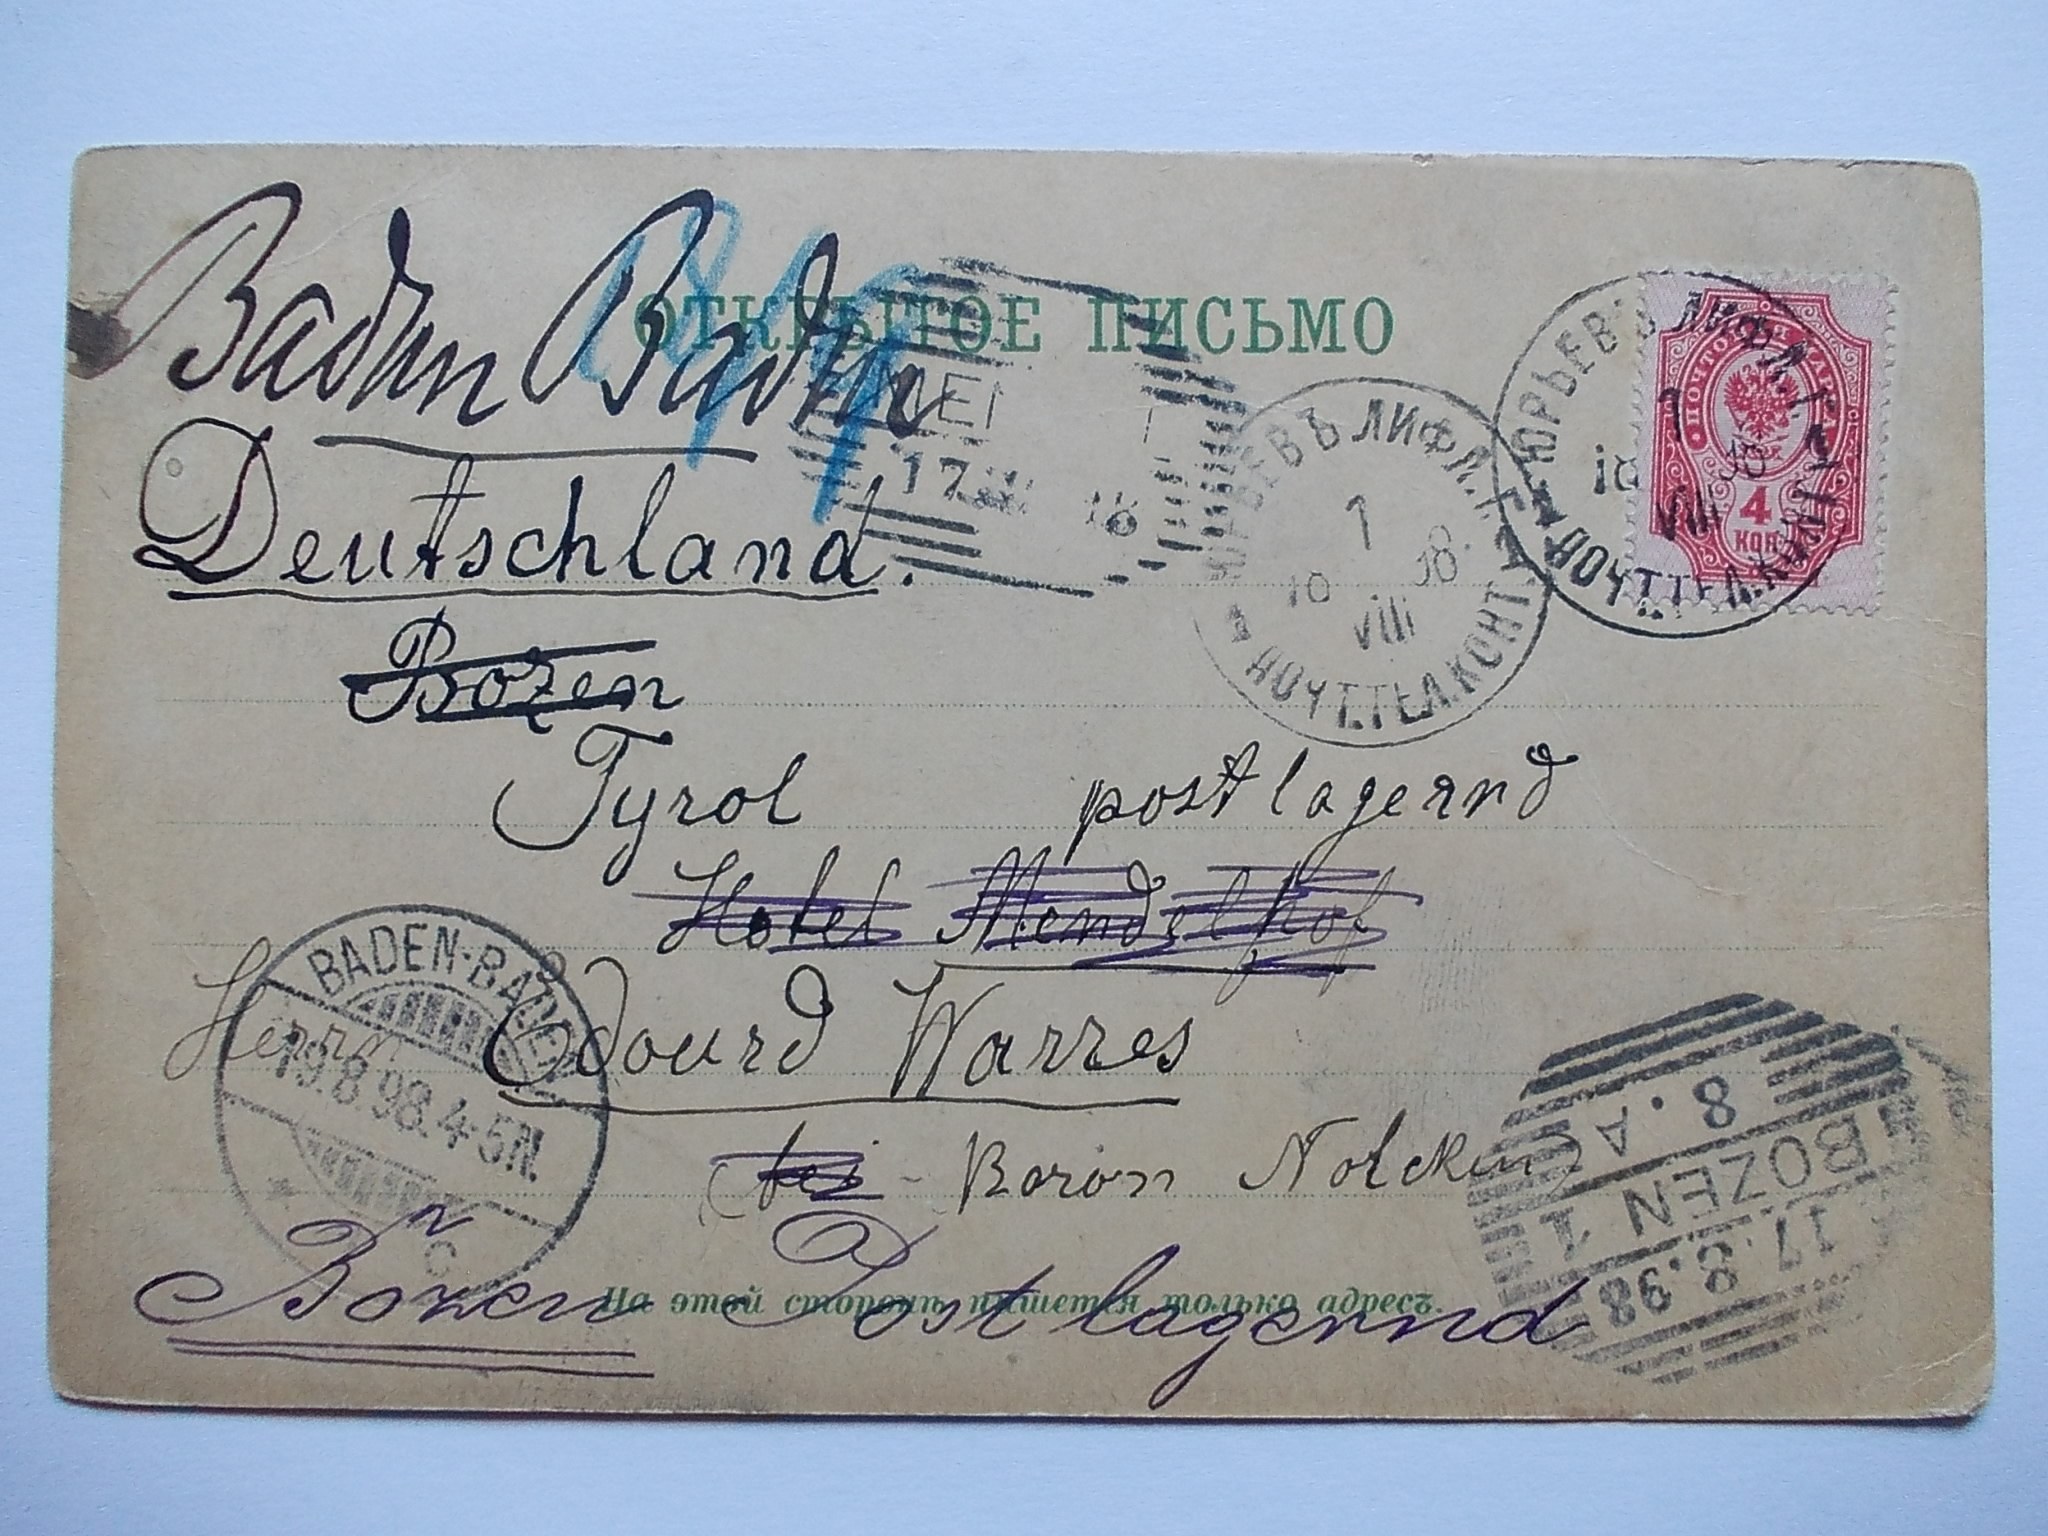 Baden Baden
ОТКРЫТОЕ ПИСЬМО
ЮРЬЕВЪ ЛИФЛ. Г.
1
10 98
VIII
ПОЧТ.ТЕЛ.КОНТ.
4
КОП.
ЮРЬЕВЪ ЛИФЛ. Г.
1
10 98.
VIII
ПОЧТ.ТЕЛ.КОНТ.
17
Deutschland.
Bozen
Tyrol postlagernd
Hotel Mendelhof
Herrn Edouard Warres
bei Baron Nolcken
BADEN-BADEN
19.8.98.4-5N.
c
8.A
BOZEN 1
17.8.98
Bozen Postlagernd
На этой сторонѣ пишется только адресъ.